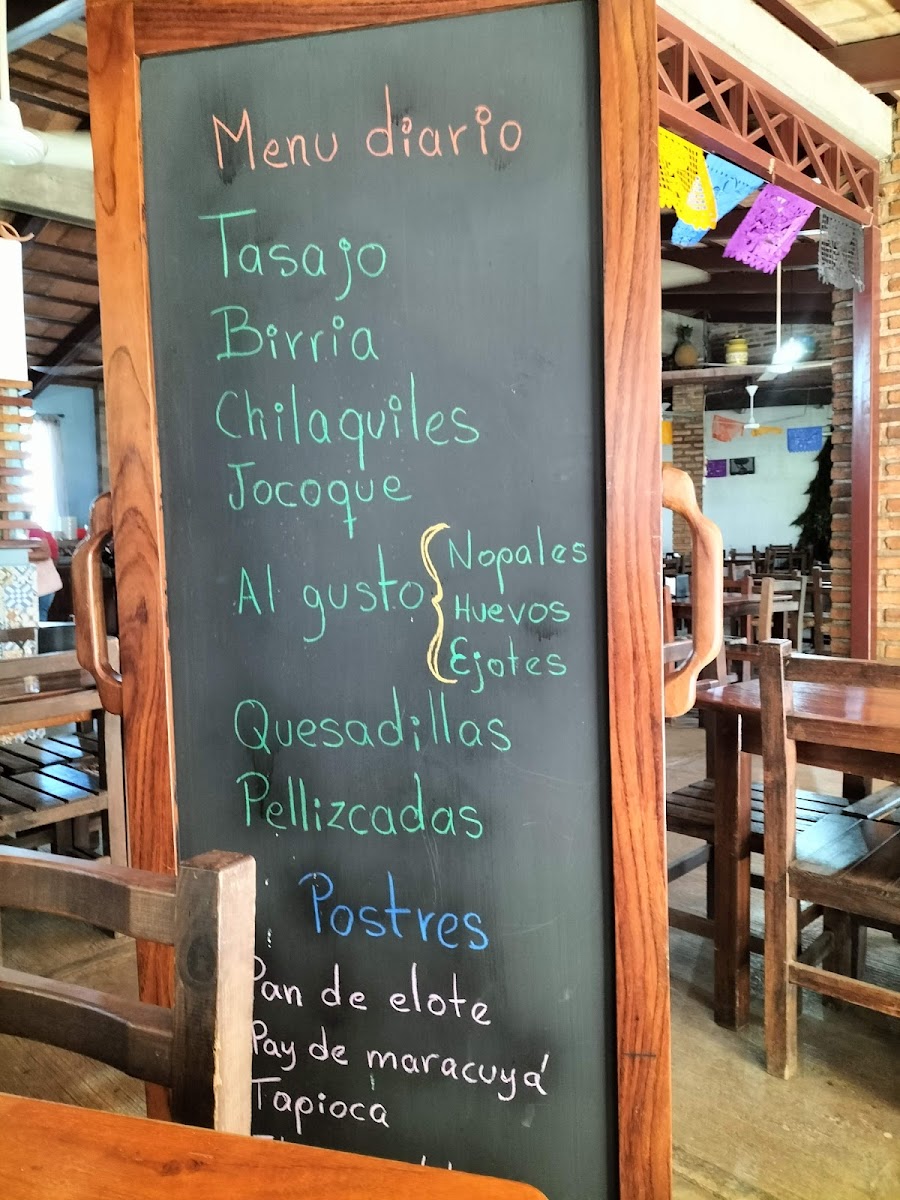 Menu diario
Tasajo
Birria
Chilaquiles
Jocoque
Al gusto
Nopales
Huevos
Ejotes
Quesadillas
Pellizcadas
Postres
Pan de elote
Pay de maracuyá
Tapioca